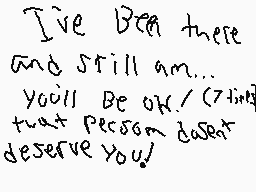 I've Been there
and still am...
you'll Be ok! (7 times)
that persom dosent
deserve you!